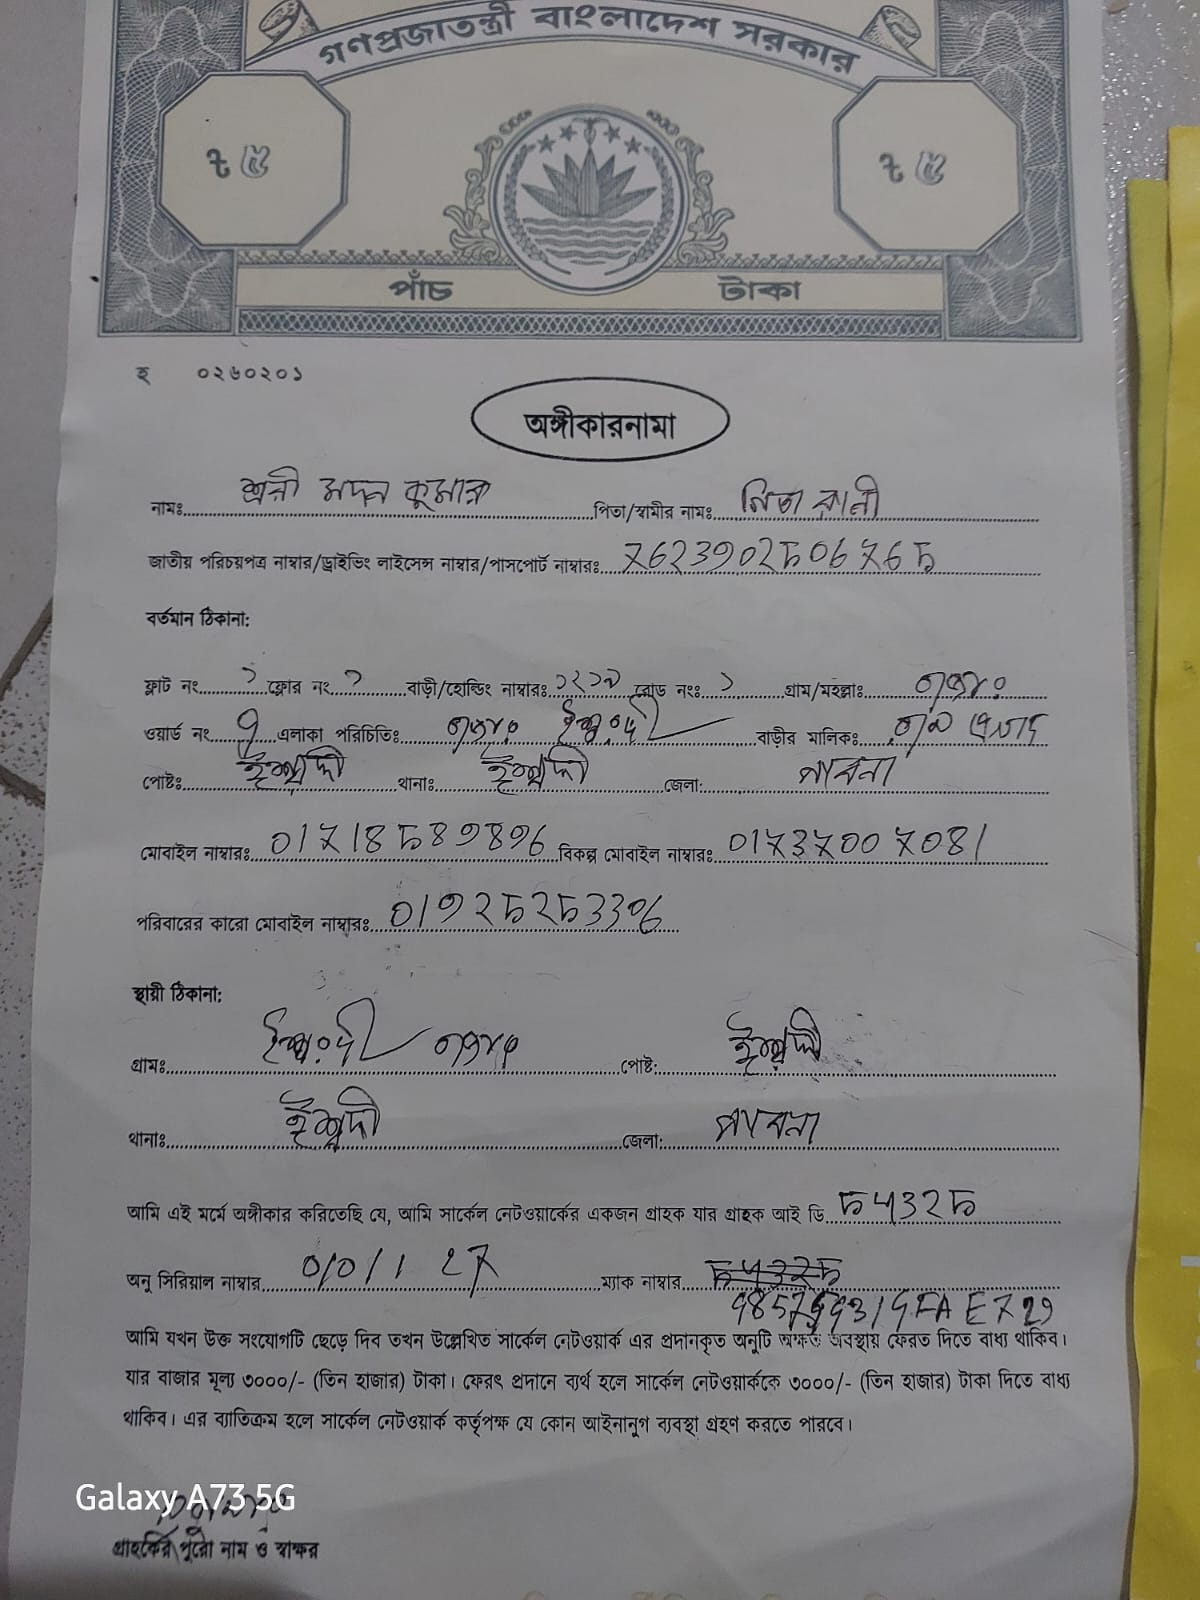 গণপ্রজাতন্ত্রী বাংলাদেশ সরকার
ট ৫ ট ৫
পাঁচ টাকা
হ ০২৬০২০১
অঙ্গীকারনামা
নামঃ শ্রী মদন কুমার পিতা/স্বামীর নামঃ মিতা রানী
জাতীয় পরিচয়পত্র নাম্বার/ড্রাইভিং লাইসেন্স নাম্বার/পাসপোর্ট নাম্বারঃ
বর্তমান ঠিকানা:
ফ্লাট নং ফ্লোর নং বাড়ী/হোল্ডিং নাম্বারঃ রোড নংঃ গ্রাম/মহল্লাঃ
ওয়ার্ড নং এলাকা পরিচিতিঃ বাড়ীর মালিকঃ
পোষ্টঃ ঈশ্বরদী থানাঃ ঈশ্বরদী জেলা: পাবনা
মোবাইল নাম্বারঃ 01718589896 বিকল্প মোবাইল নাম্বারঃ 01737007081
পরিবারের কারো মোবাইল নাম্বারঃ
স্থায়ী ঠিকানা:
গ্রামঃ পোষ্ট: ঈশ্বরদী
থানাঃ ঈশ্বরদী জেলা: পাবনা
আমি এই মর্মে অঙ্গীকার করিতেছি যে, আমি সার্কেল নেটওয়ার্কের একজন গ্রাহক যার গ্রাহক আই ডি 54325
অনু সিরিয়াল নাম্বার ম্যাক নাম্বার
আমি যখন উক্ত সংযোগটি ছেড়ে দিব তখন উল্লেখিত সার্কেল নেটওয়ার্ক এর প্রদানকৃত অনুটি অক্ষত অবস্থায় ফেরত দিতে বাধ্য থাকিব।
যার বাজার মূল্য ৩০০০/- (তিন হাজার) টাকা। ফেরৎ প্রদানে ব্যর্থ হলে সার্কেল নেটওয়ার্ককে ৩০০০/- (তিন হাজার) টাকা দিতে বাধ্য
থাকিব। এর ব্যাতিক্রম হলে সার্কেল নেটওয়ার্ক কর্তৃপক্ষ যে কোন আইনানুগ ব্যবস্থা গ্রহণ করতে পারবে।
Galaxy A73 5G
গ্রাহকের পুরো নাম ও স্বাক্ষর